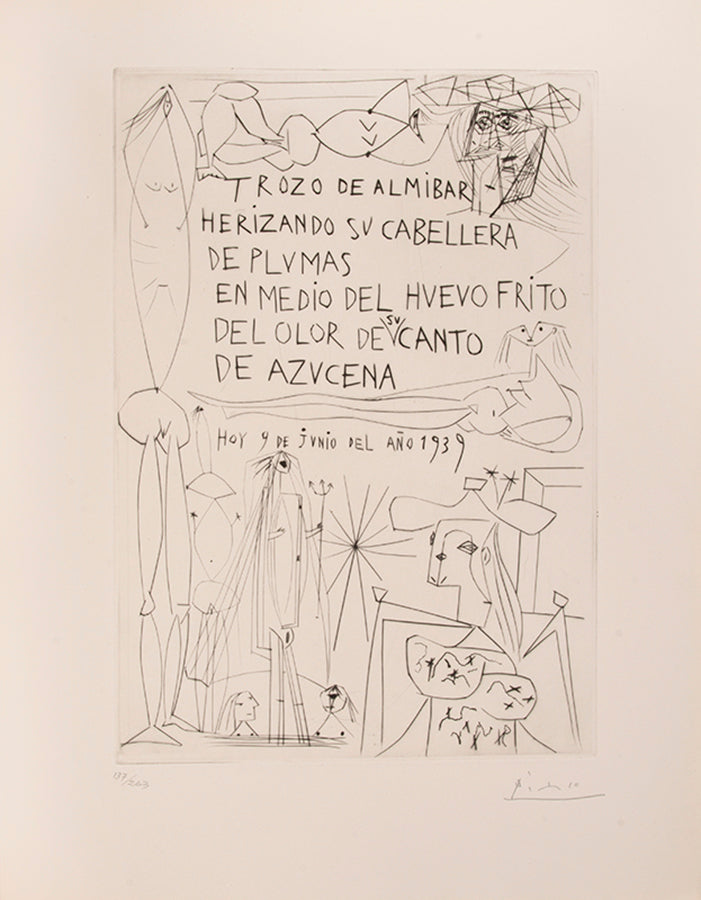 TROZO DE ALMIBAR
HERIZANDO SV CABELLERA
DE PLVMAS
EN MEDIO DEL HVEVO FRITO
DEL OLOR DE SV CANTO
DE AZVCENA
HOY 9 DE JVNIO DEL AÑO 1939
137/263
Picasso